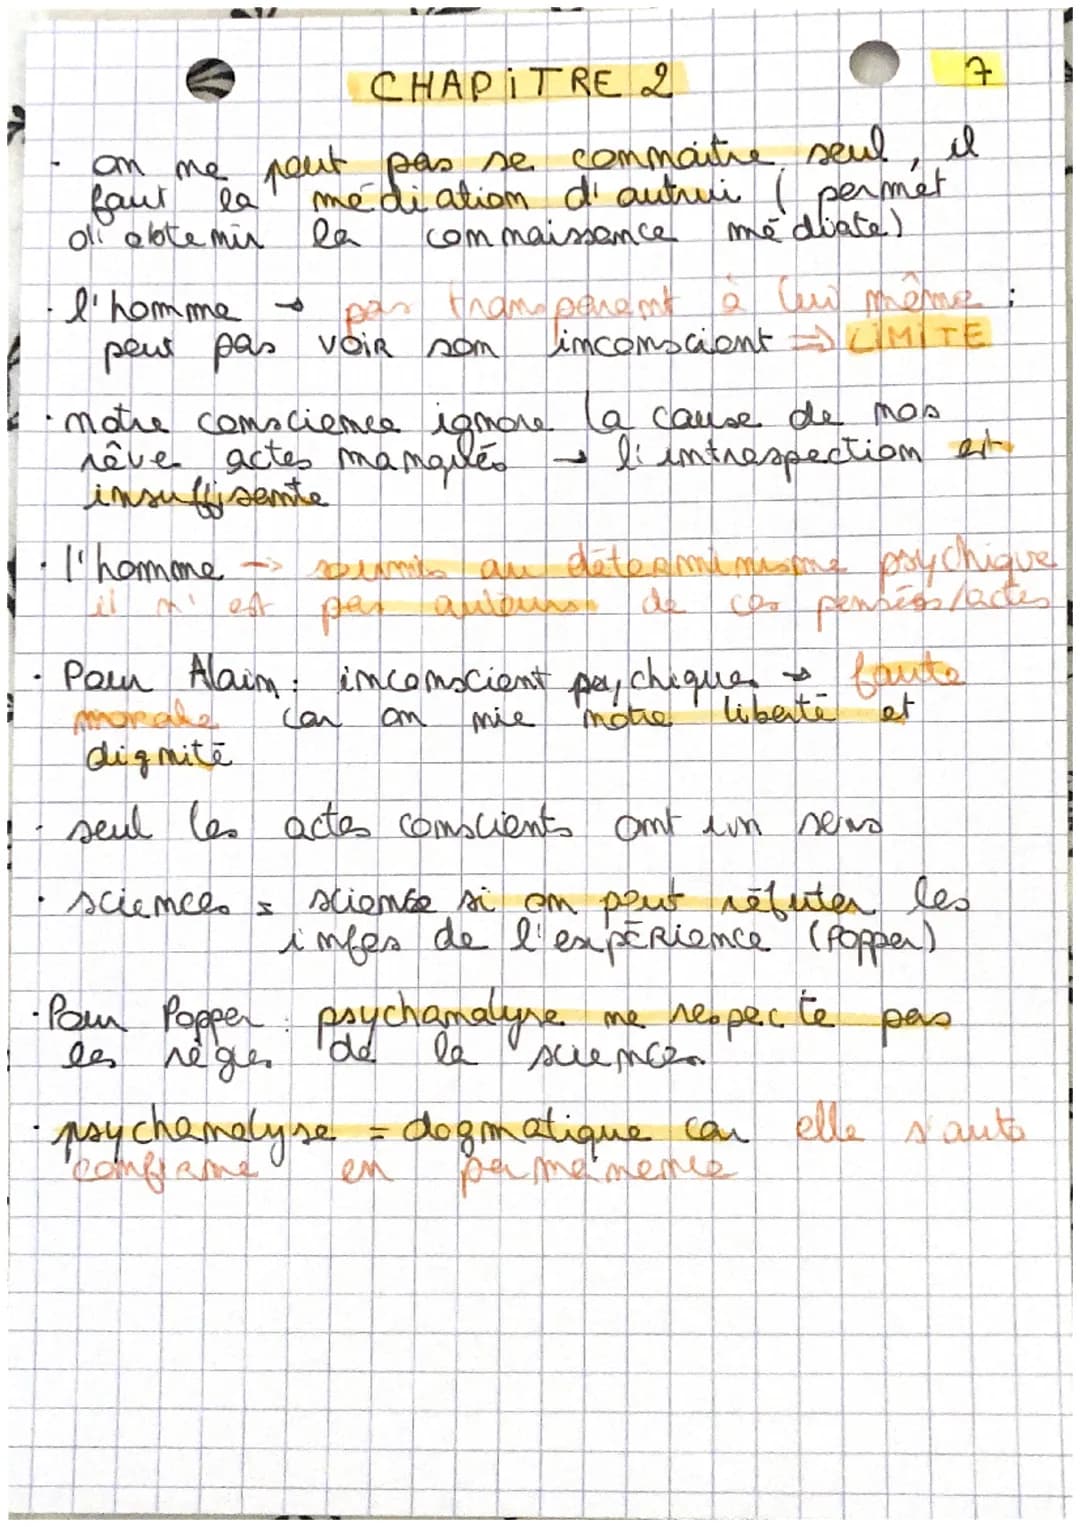 CHAPITRE 2
7
· on ne peut pas se connaitre seul, il
faut la médiation d'autrui ( permet
d'obtenir la connaissance médiate)
· l'homme → pas transparent à lui même :
peut pas voir son inconscient => LIMITE
· notre conscience ignore la cause de nos
rêve actes manqués → l'introspection est
insuffisante
· l'homme → soumis au déterminisme psychique
il n'est pas auteurs de ces pensées/actes
· Pour Alain : inconscient psychique → faute
morale car on nie notre liberté et
dignité
· seul les actes conscients ont un sens
· sciences = science si on peut réfuter les
infos de l'expérience (Popper)
· Pour Popper : psychanalyse ne respecte pas
les règles de la sciences
· psychanalyse = dogmatique car elle s'auto
confirme en permanence